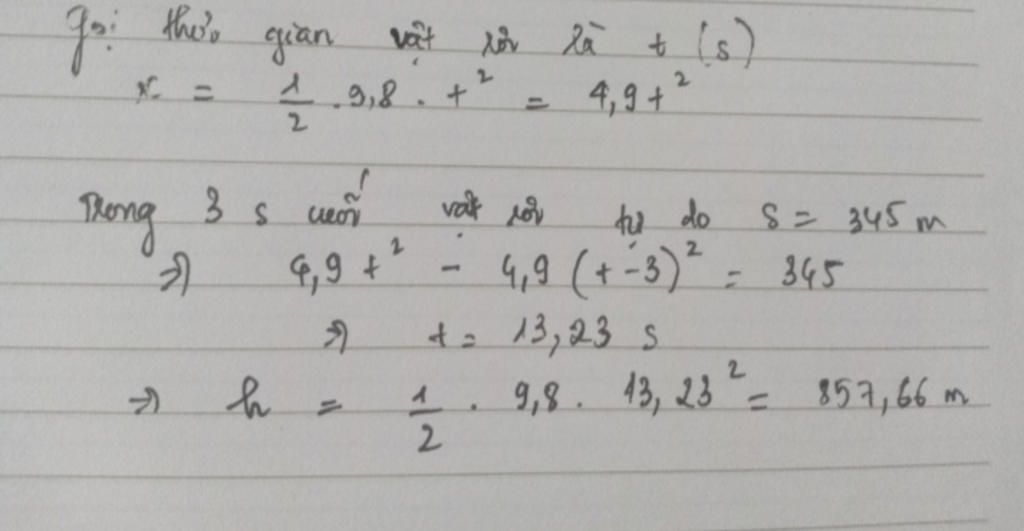 Gọi thời gian vật rơi là t (s)
x = 1/2 . 9,8 . t² = 4,9t²
Trong 3 s cuối vật rơi tự do s = 345 m
=> 4,9t² - 4,9(t-3)² = 345
=> t = 13,23 s
=> h = 1/2 . 9,8 . 13,23² = 857,66 m